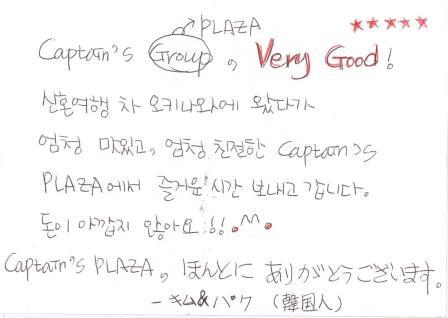 PLAZA ★★★★★
Captain's Group, Very Good!
신혼여행 차 오키나와에 왔다가
엄청 맛있고, 엄청 친절한 Captain's
PLAZA에서 즐거운 시간 보내고 갑니다.
돈이 아깝지 않아요!! .^^.
Captain's PLAZA, ほんとに ありがとうございます。
- キム&パク (韓国人)